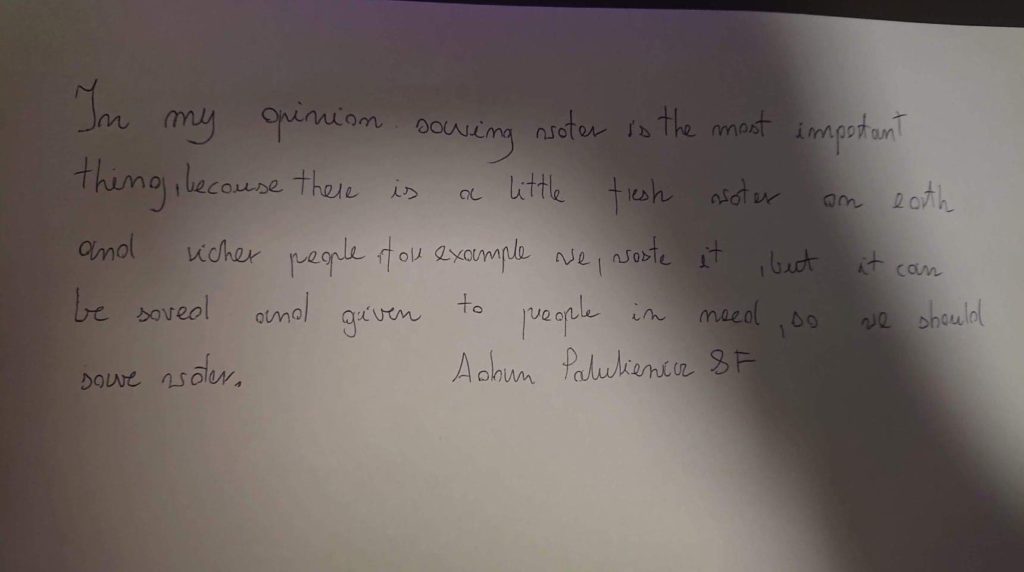 In my opinion saving water is the most important
thing, because there is a little fresh water on earth
and richer people for example we, waste it, but it can
be saved and given to people in need, so we should
save water. 8F